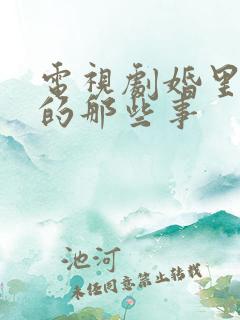 電視劇婚里
的那些事
池河
未經同意禁止轉載